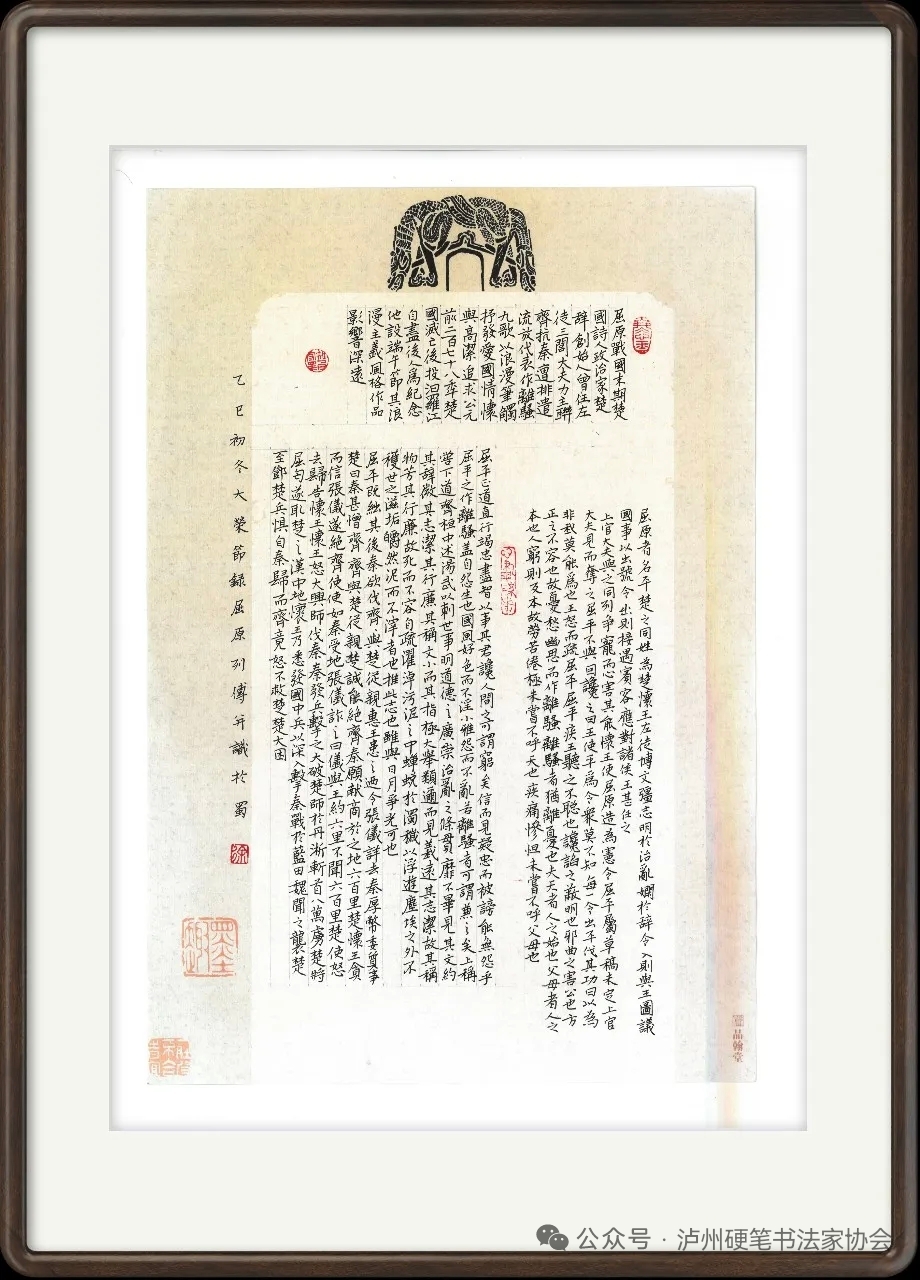 屈原戰國末期楚
國詩人政治家楚
辭創始人曾任左
徒三閭大夫力主聯
齊抗秦遭排遣
流放代表作離騷
九歌以浪漫筆觸
抒發愛國情懷
與高潔追求公元
前二百七十八年楚
國滅亡後投汨羅江
自盡後人為紀念
他設端午節其浪
漫主義風格作品
影響深遠
屈原者名平楚之同姓為楚懷王左徒博文彊志明於治亂嫻於辭令入則與王圖議
國事以出號令出則接遇賓客應對諸侯王甚任之
上官大夫與之同列爭寵而心害其能懷王使屈原造為憲令屈平屬草稿未定上官
大夫見而奪之屈平不與因讒之曰王使平為令衆莫不知每一令出平伐其功曰以為
非我莫能為也王怒而疏屈平屈平疾王聽之不聰也讒諂之蔽明也邪曲之害公也方
正之不容也故憂愁幽思而作離騷離騷者猶離憂也夫天者人之始也父母者人之
本也人窮則反本故勞苦倦極未嘗不呼天也疾痛慘怛未嘗不呼父母也
屈平正道直行竭忠盡智以事其君讒人間之可謂窮矣信而見疑忠而被謗能無怨乎
屈平之作離騷蓋自怨生也國風好色而不淫小雅怨而不亂若離騷者可謂兼之矣上稱
嚳下道齊桓中述湯武以刺世事明道德之廣崇治亂之條貫靡不畢見其文約
其辭微其志潔其行廉其稱文小而其指極大舉類邇而見義遠其志潔故其稱
物芳其行廉故死而不容自疏濯淖污泥之中蟬蛻於濁穢以浮遊塵埃之外不
獲世之滋垢皭然泥而不滓者也推此志也雖與日月爭光可也
屈平既絀其後秦欲伐齊齊與楚從親惠王患之迺令張儀詳去秦厚幣委質事
楚曰秦甚憎齊齊與楚從親楚誠能絕齊秦願獻商於之地六百里楚懷王貪
而信張儀遂絕齊使使如秦受地張儀詐之曰儀與王約六里不聞六百里楚使怒
去歸告懷王懷王怒大興師伐秦秦發兵擊之大破楚師於丹淅斬首八萬虜楚將
屈匄遂取楚之漢中地懷王乃悉發國中兵以深入擊秦戰於藍田魏聞之襲楚
至鄧楚兵懼自秦歸而齊竟怒不救楚楚大困
乙巳初冬大榮節錄屈原列傳并識於蜀
品翰堂
公众号·泸州硬笔书法家协会